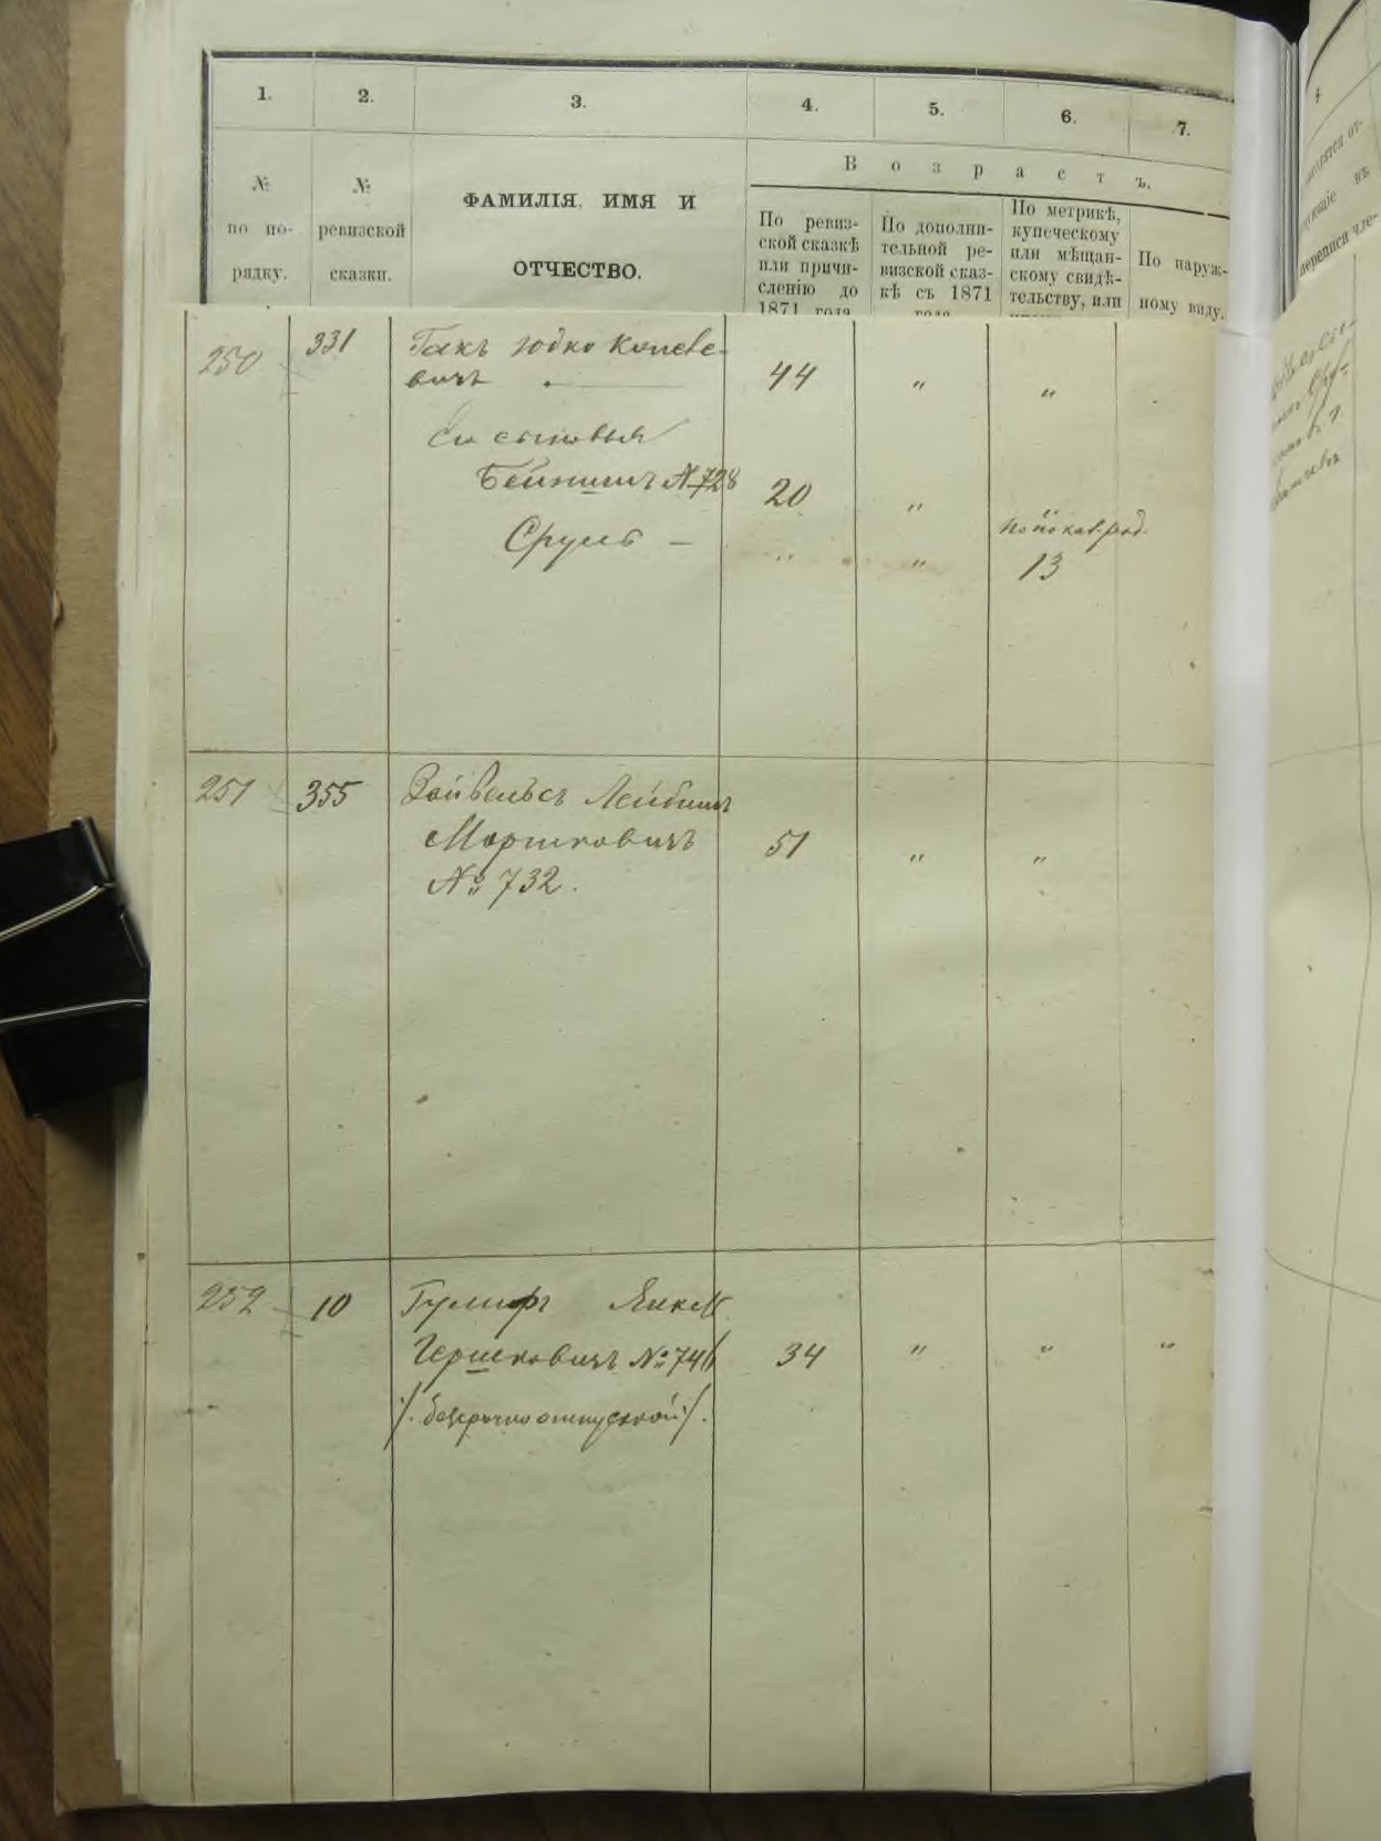 1. 2. 3. 4. 5. 6. 7.
№
по по-
рядку.
№
ревизской
сказки.
ФАМИЛІЯ, ИМЯ И
ОТЧЕСТВО.
Возрастъ.
По ревиз-
ской сказкѣ
или причи-
сленію до
1871 года
По дополни-
тельной ре-
визской сказ-
кѣ съ 1871
года
По метрикѣ,
купеческому
или мѣщан-
скому свидѣ-
тельству, или
По наруж-
ному виду.
250 331 Гакъ Юдко Копеле-
вичъ 44 " "
Его сыновья
Бейнишъ №728 20 " "
По показ. род.
Сруль — " " 13
251 355 Зайвельсъ Лейбишъ
Моршковичъ 51 " "
№ 732.
252 10 Гулифръ Янкель
Гершковичъ № 741 34 " " "
/. безсрочно отпускной ./.